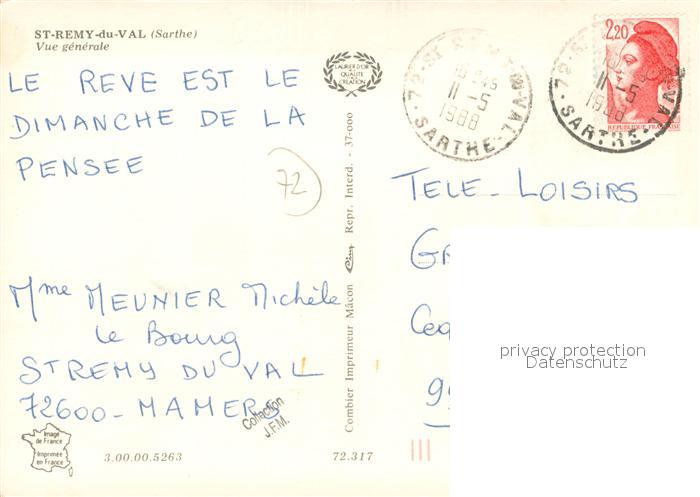 ST-REMY-du-VAL (Sarthe)
Vue générale
LE REVE EST LE
DIMANCHE DE LA
PENSEE
72
Mme MEUNIER Michèle
le Bourg
ST REMY DU VAL
72600 - MAMERS
Collection
J.F.M.
Image
de France
Imprimée
en France
3.00.00.5263
72.317
LAURIER D'OR
DE LA
QUALITÉ
DE LA
CRÉATION
Combier Imprimeur Mâcon Cim Repr. Interd. - 37-000
18 H 45
11 - 5
1988
SARTHE
2,20
REPUBLIQUE FRANÇAISE
11 - 5
1988
SARTHE
TELE-LOISIRS
privacy protection
Datenschutz